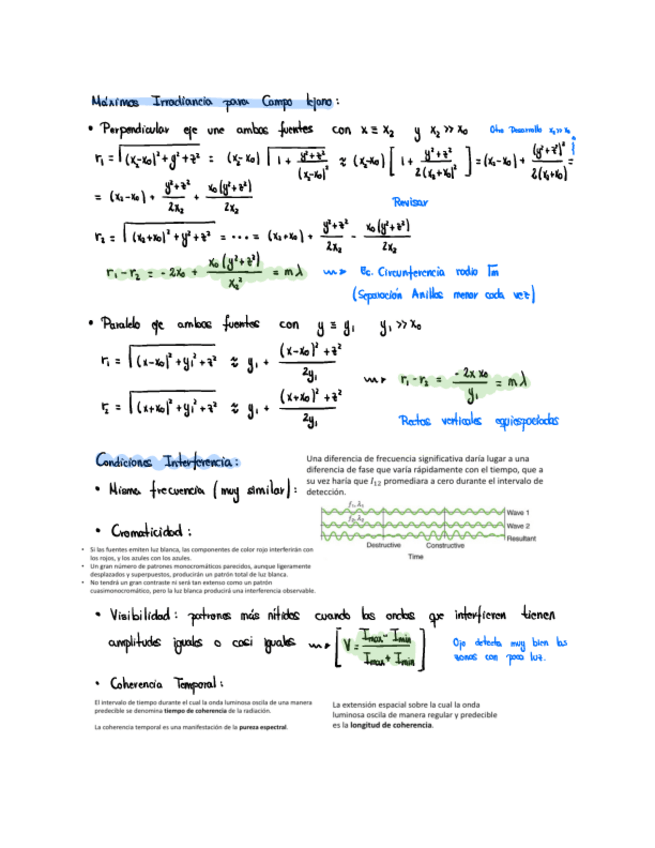 Máximos Irradiancia para Campo lejano:
• Perpendicular eje une ambas fuentes con x ≡ x₂ y x₂ >> x₀ Otro Desarrollo x₂ >> x₀
r₁ = √((x₂-x₀)² + y² + z²) = (x₂-x₀) √(1 + (y²+z²)/(x₂-x₀)²) ≈ (x₂-x₀) [1 + (y²+z²)/(2(x₂+x₀)²)] = (x₂-x₀) + (y²+z²)/(2(x₂+x₀)) =
= (x₂-x₀) + (y²+z²)/(2x₂) + x₀(y²+z²)/(2x₂) Revisar
r₂ = √((x₂+x₀)² + y² + z²) = ... = (x₂+x₀) + (y²+z²)/(2x₂) - x₀(y²+z²)/(2x₂)
r₁ - r₂ = -2x₀ + x₀(y²+z²)/x₂² = mλ Ec. Circunferencia radio √m
(Separación Anillos menor cada vez)
• Paralelo eje ambas fuentes con y ≡ y₁ y₁ >> x₀
r₁ = √((x-x₀)² + y₁² + z²) ≈ y₁ + ((x-x₀)² + z²)/(2y₁)
r₁ - r₂ = (-2x x₀)/y₁ = mλ
r₂ = √((x+x₀)² + y₁² + z²) ≈ y₁ + ((x+x₀)² + z²)/(2y₁)
Rectas verticales equiespaciadas
Condiciones Interferencia:
• Misma frecuencia (muy similar):
Una diferencia de frecuencia significativa daría lugar a una
diferencia de fase que varía rápidamente con el tiempo, que a
su vez haría que I₁₂ promediara a cero durante el intervalo de
detección.
f₁, λ₁
Wave 1
f₂, λ₂
Wave 2
Resultant
Destructive Constructive
Time
• Cromaticidad:
• Si las fuentes emiten luz blanca, las componentes de color rojo interferirán con
los rojos, y los azules con los azules.
• Un gran número de patrones monocromáticos parecidos, aunque ligeramente
desplazados y superpuestos, producirán un patrón total de luz blanca.
• No tendrá un gran contraste ni será tan extenso como un patrón
cuasimonocromático, pero la luz blanca producirá una interferencia observable.
• Visibilidad: patrones más nítidos cuando las ondas que interfieren tienen
amplitudes iguales o casi iguales [V = (Imax - Imin)/(Imax + Imin)] Ojo detecta muy bien las
zonas con poca luz.
• Coherencia Temporal:
El intervalo de tiempo durante el cual la onda luminosa oscila de una manera
predecible se denomina tiempo de coherencia de la radiación.
La coherencia temporal es una manifestación de la pureza espectral.
La extensión espacial sobre la cual la onda
luminosa oscila de manera regular y predecible
es la longitud de coherencia.